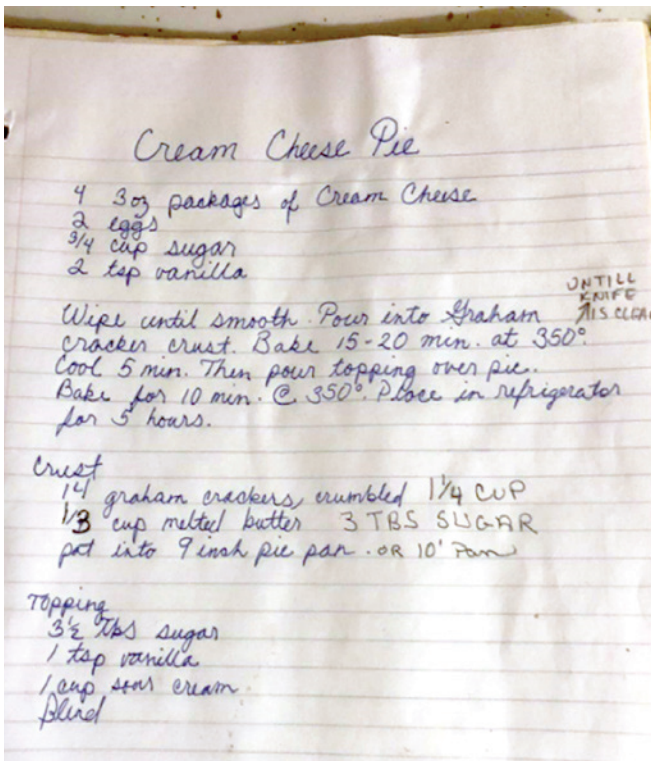 Cream Cheese Pie
4 3oz packages of Cream Cheese
2 eggs
3/4 cup sugar
2 tsp vanilla
UNTILL
KNIFE
IS CLEAR
Wipe until smooth. Pour into Graham
cracker crust. Bake 15-20 min. at 350°.
Cool 5 min. Then pour topping over pie.
Bake for 10 min. @ 350°. Place in refrigerator
for 5 hours.
Crust
14 graham crackers, crumbled 1 1/4 CUP
1/3 cup melted butter 3 TBS SUGAR
pat into 9 inch pie pan. OR 10' Pan
Topping
3 1/2 Tbs sugar
1 tsp vanilla
1 cup sour cream
Blend